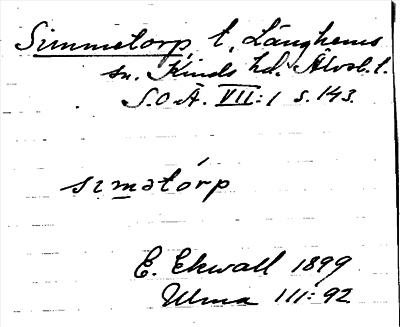 Simmetorp, t, Länghems
sn. Kinds hd. Älvsb. l.
S.O Ä. VII:1 s. 143.
sımətórp
E. Ekwall 1899
Ulma 111:92